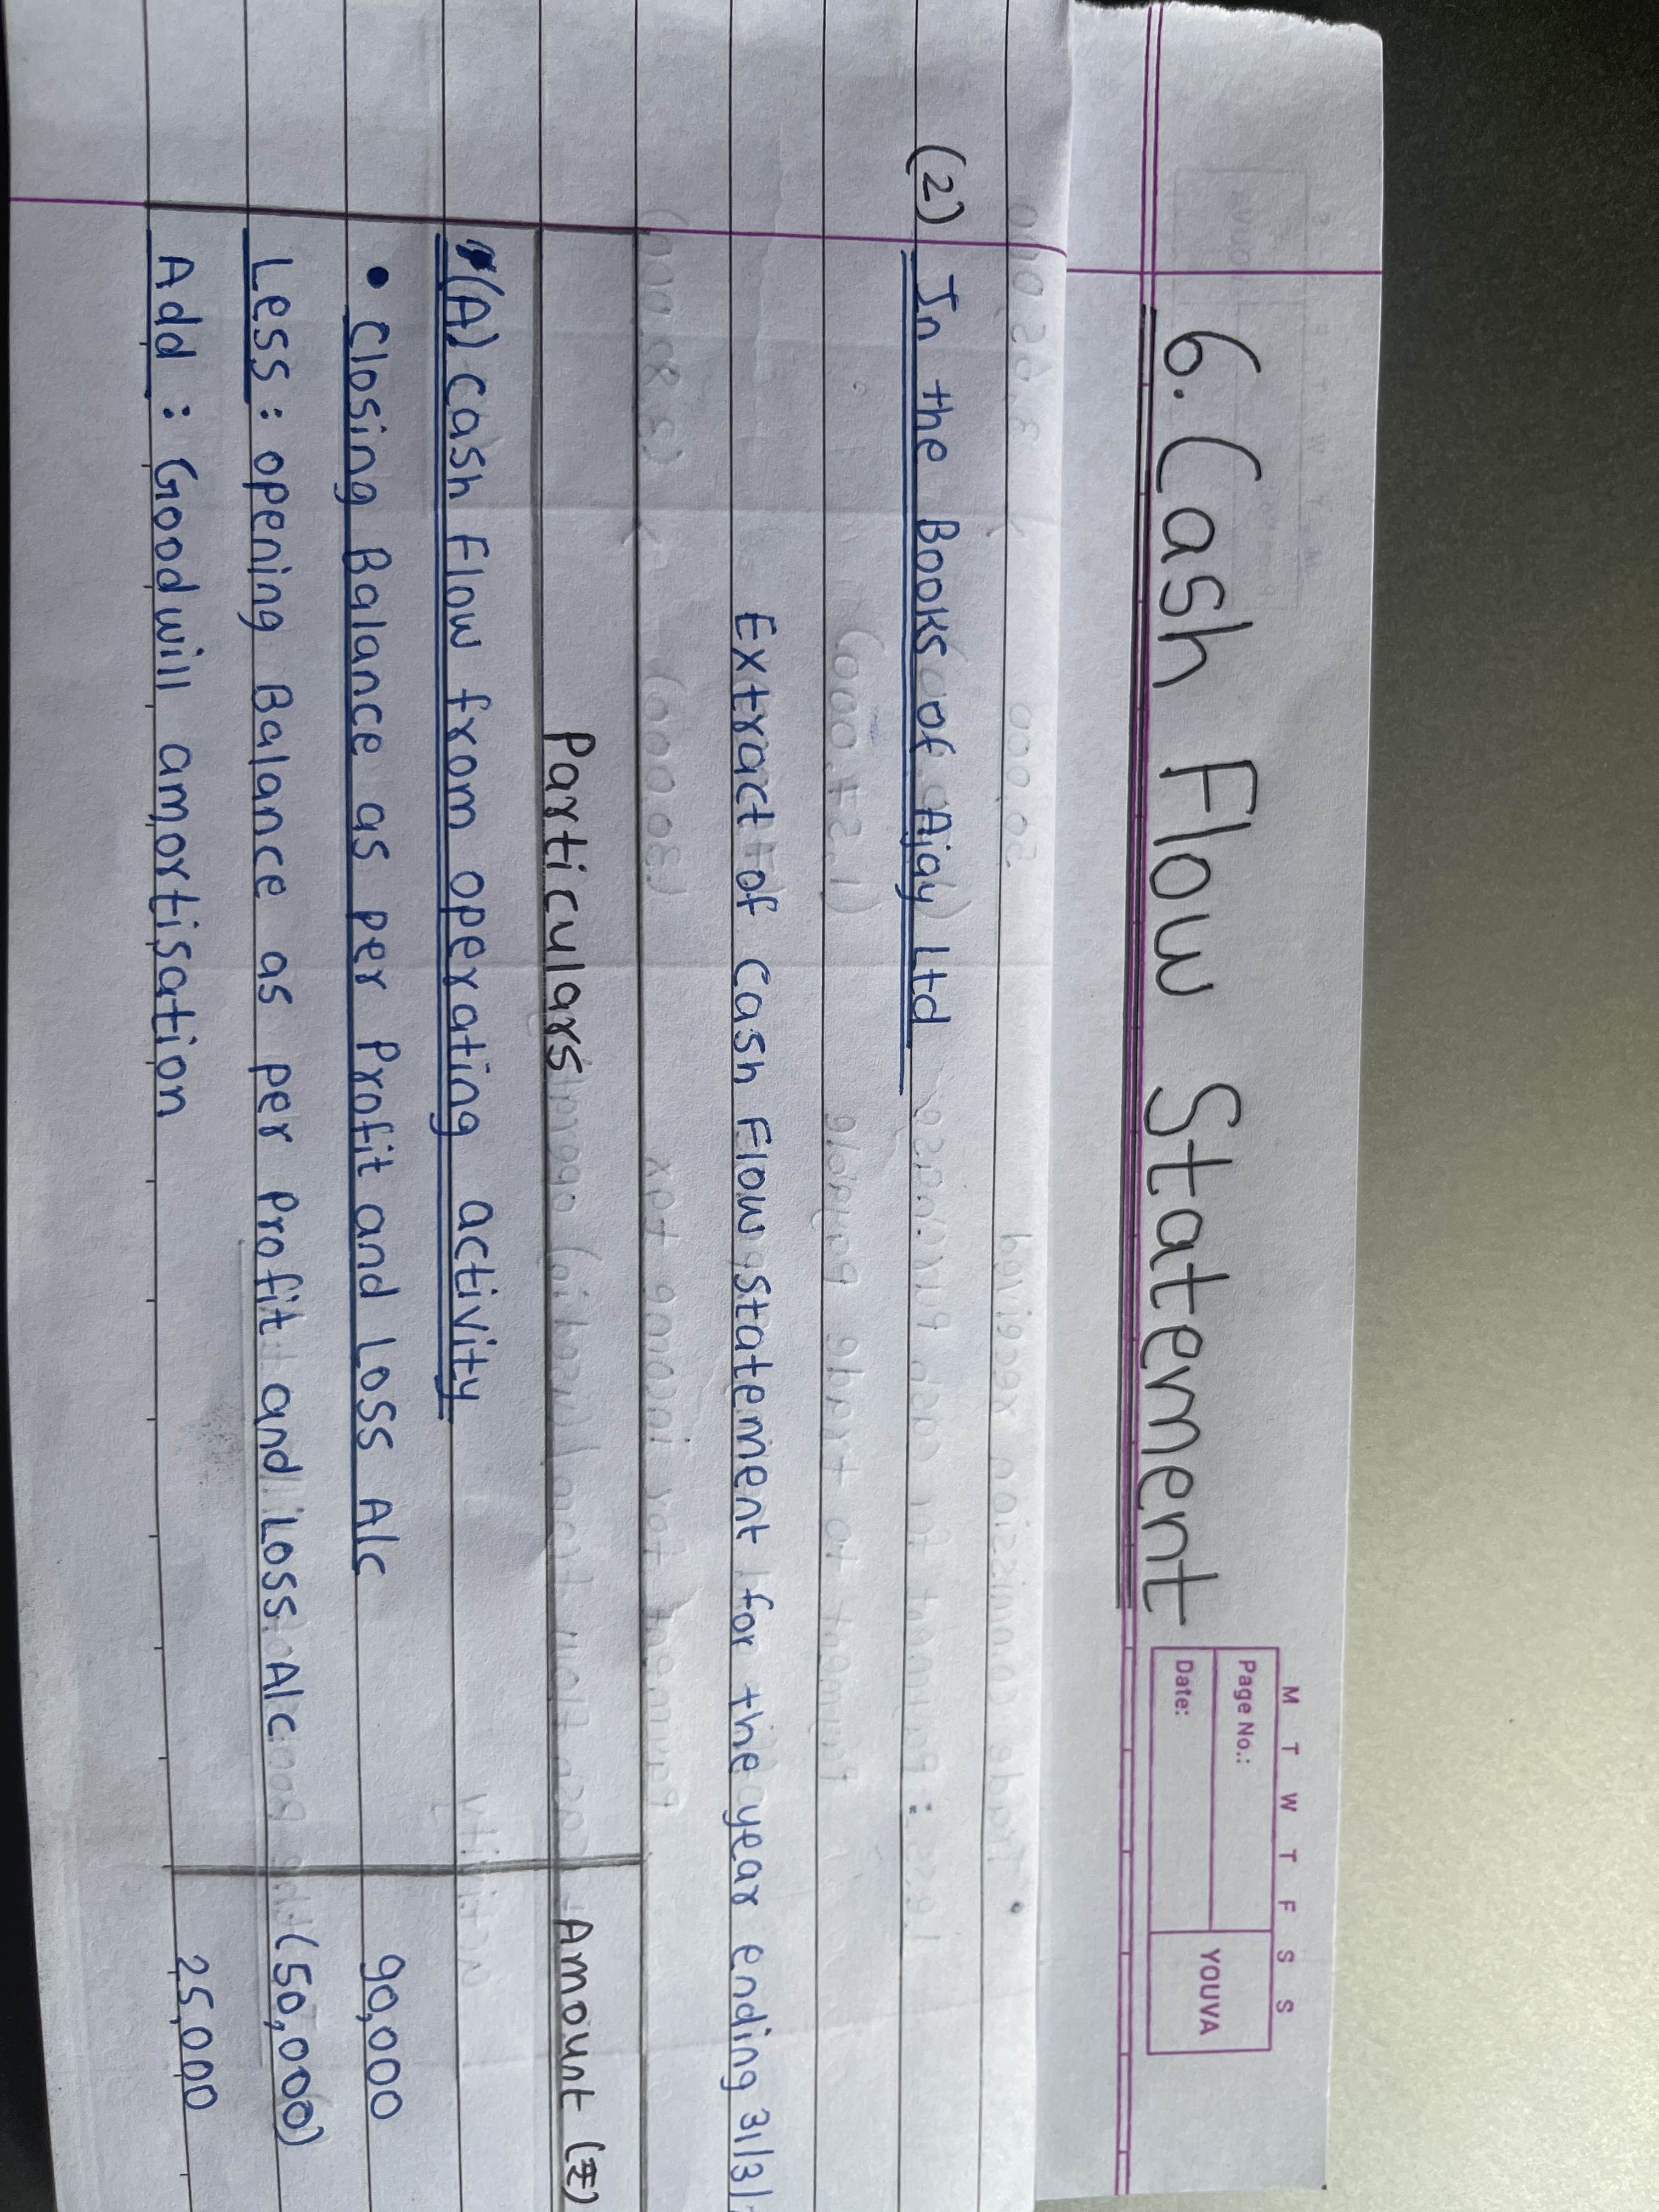 M T W T F S S
Page No.:
Date:
YOUVA
6. Cash Flow Statement
(2) In the Books of Ajay Ltd
Extract of Cash Flow Statement for the year ending 31/3/
Particulars Amount (₹)
(A) Cash Flow from operating activity
• Closing Balance as per Profit and Loss A/c 90,000
Less: opening Balance as per Profit and Loss A/c (50,000)
Add: Goodwill amortisation 25,000